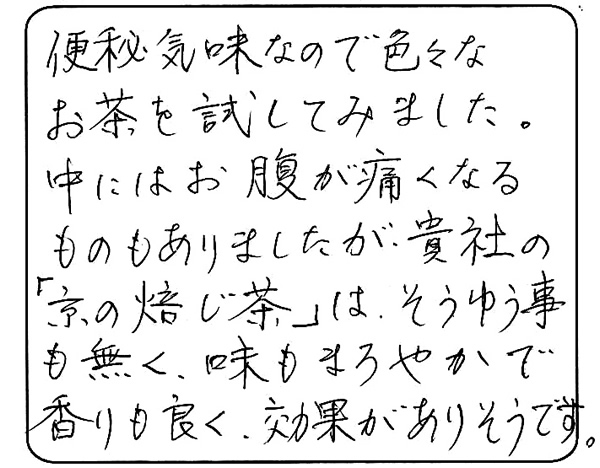 便秘気味なので色々な
お茶を試してみました。
中にはお腹が痛くなる
ものもありましたが、貴社の
「京の焙じ茶」は、そうゆう事
も無く、味もまろやかで
香りも良く、効果がありそうです。